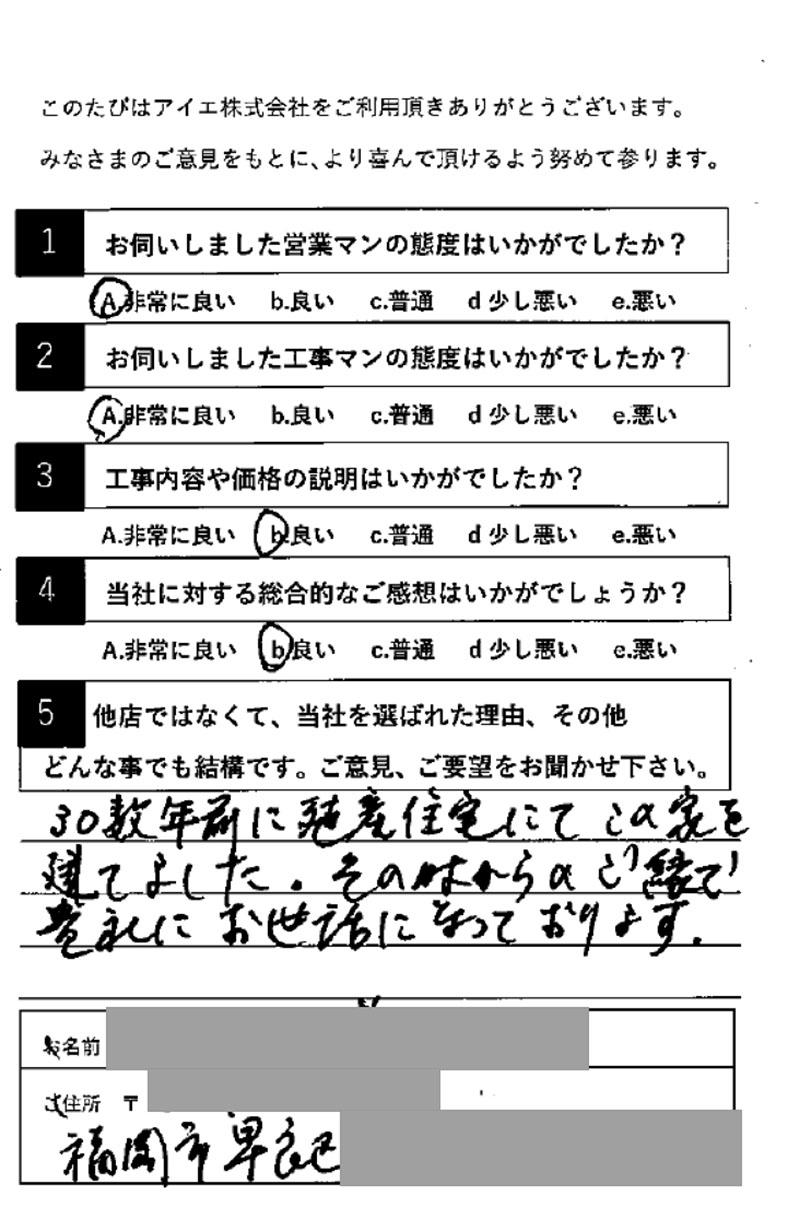 このたびはアイエ株式会社をご利用頂きありがとうございます。
みなさまのご意見をもとに、より喜んで頂けるよう努めて参ります。
1 お伺いしました営業マンの態度はいかがでしたか?
A.非常に良い b.良い c.普通 d 少し悪い e.悪い
2 お伺いしました工事マンの態度はいかがでしたか?
A.非常に良い b.良い c.普通 d 少し悪い e.悪い
3 工事内容や価格の説明はいかがでしたか?
A.非常に良い b.良い c.普通 d 少し悪い e.悪い
4 当社に対する総合的なご感想はいかがでしょうか?
A.非常に良い b.良い c.普通 d 少し悪い e.悪い
5 他店ではなくて、当社を選ばれた理由、その他
どんな事でも結構です。ご意見、ご要望をお聞かせ下さい。
30数年前に殖産住宅にてこの家を
建てました。その時からのご縁で
貴社にお世話になっております。
お名前
ご住所 〒
福岡市早良区